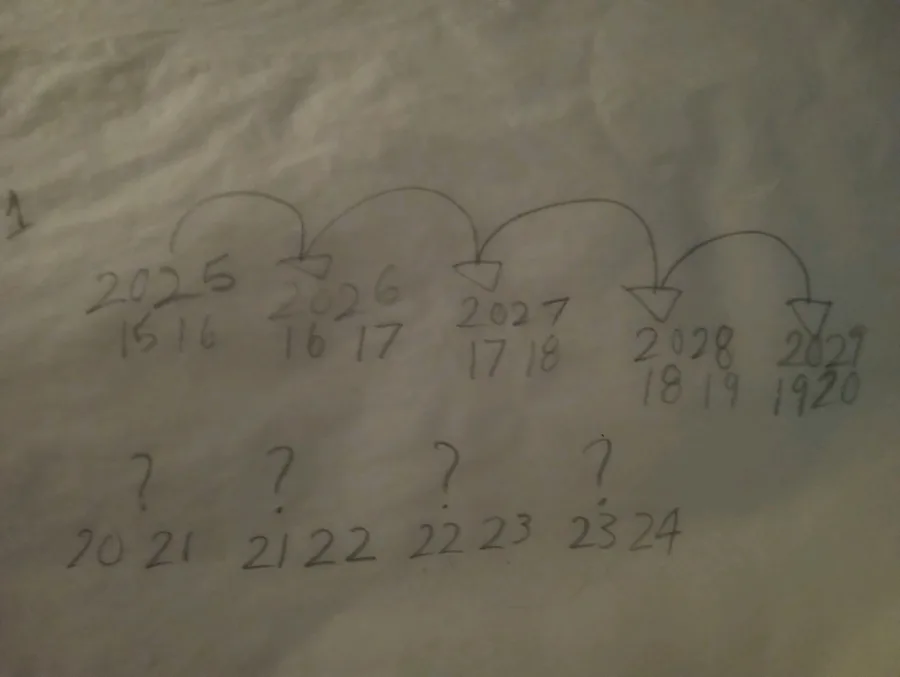 1
2025 2026 2027 2028 2029
15 16 16 17 17 18 18 19 19 20
? ? ? ?
20 21 21 22 22 23 23 24